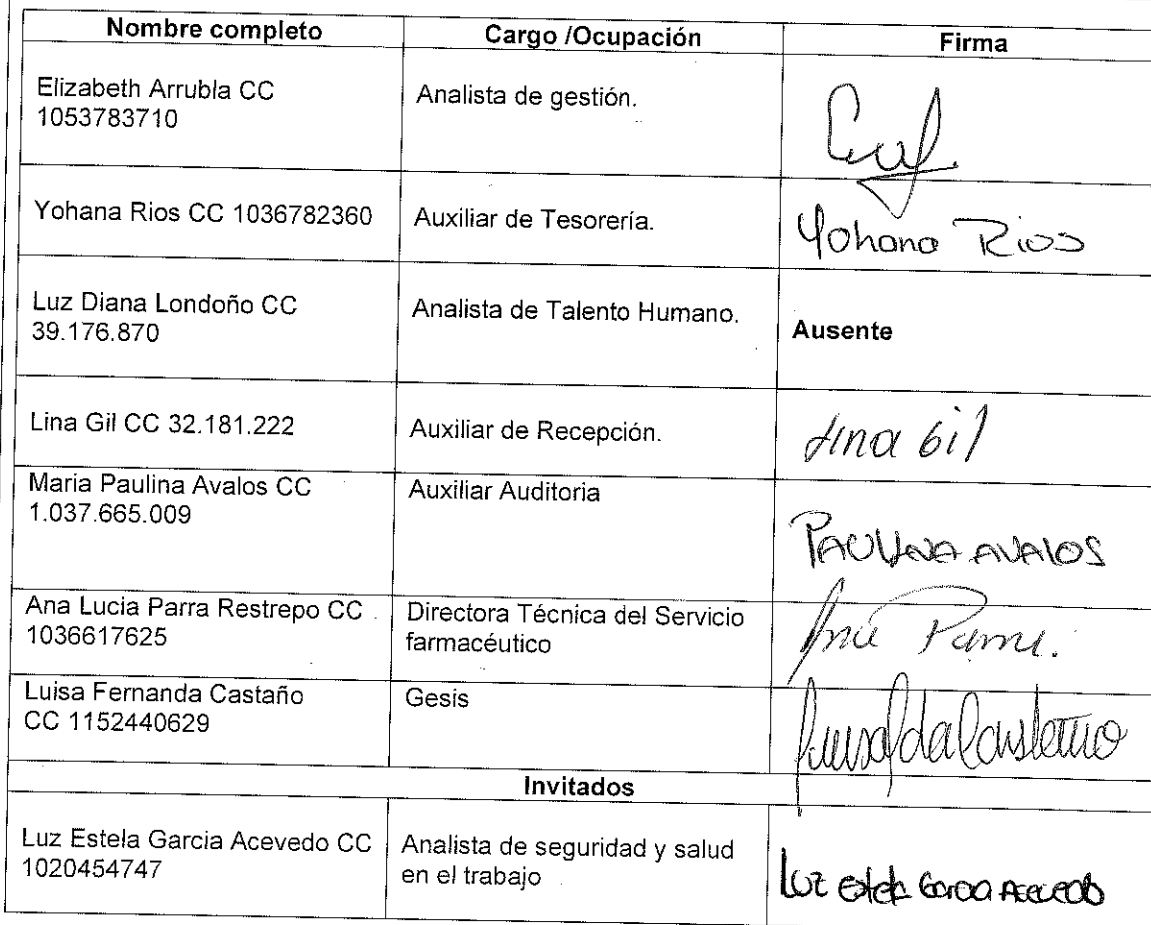 Nombre completo Cargo /Ocupación Firma
Elizabeth Arrubla CC
1053783710
Analista de gestión.
Yohana Rios CC 1036782360
Auxiliar de Tesorería.
Yohana Rios
Luz Diana Londoño CC
39.176.870
Analista de Talento Humano.
Ausente
Lina Gil CC 32.181.222
Auxiliar de Recepción.
Lina Gil
Maria Paulina Avalos CC
1.037.665.009
Auxiliar Auditoria
PAULINA AVALOS
Ana Lucia Parra Restrepo CC
1036617625
Directora Técnica del Servicio
farmacéutico
Ana Parra.
Luisa Fernanda Castaño
CC 1152440629
Gesis
Luisa fda Castaño
Invitados
Luz Estela Garcia Acevedo CC
1020454747
Analista de seguridad y salud
en el trabajo
Luz Estela Garcia Acevedo